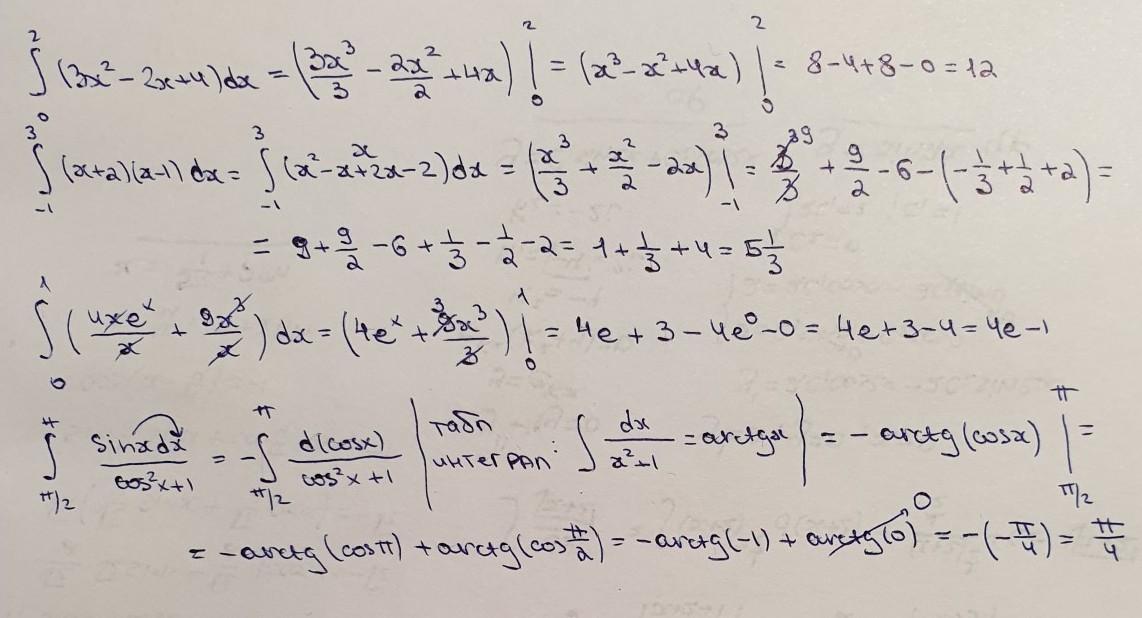 ∫₀² (3x² − 2x + 4)dx = (3x³/3 − 2x²/2 + 4x) |₀² = (x³ − x² + 4x) |₀² = 8 − 4 + 8 − 0 = 12
∫₋₁³ (x+2)(x−1) dx = ∫₋₁³ (x² − x + 2x − 2)dx = (x³/3 + x²/2 − 2x) |₋₁³ = 9 + 9/2 − 6 − (−1/3 + 1/2 + 2) =
= 9 + 9/2 − 6 + 1/3 − 1/2 − 2 = 1 + 1/3 + 4 = 5 1/3
∫₀¹ (4xeˣ/x + 9x³/x) dx = (4eˣ + 9x³/3) |₀¹ = 4e + 3 − 4e⁰ − 0 = 4e + 3 − 4 = 4e − 1
∫_{π/2}^{π} sinxdx/(cos²x+1) = −∫_{π/2}^{π} d(cosx)/(cos²x+1) | табл интеграл: ∫ dx/(x²+1) = arctgx | = −arctg(cosx) |_{π/2}^{π} =
= −arctg(cosπ) + arctg(cos π/2) = −arctg(−1) + arctg(0) 0 = −(−π/4) = π/4